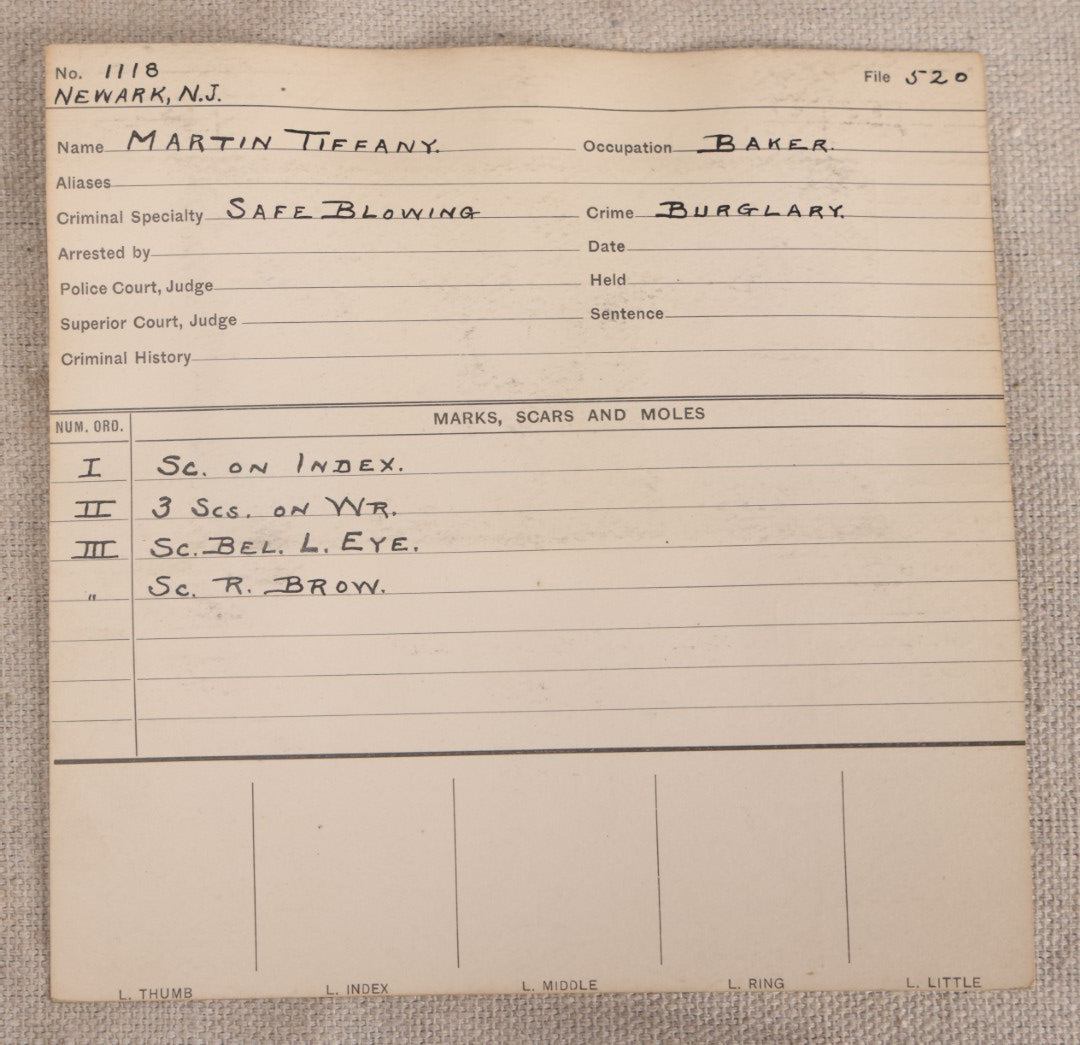 No. 1118 File 520
NEWARK, N.J.
Name MARTIN TIFFANY. Occupation BAKER.
Aliases
Criminal Specialty SAFE BLOWING Crime BURGLARY.
Arrested by Date
Police Court, Judge Held
Superior Court, Judge Sentence
Criminal History
NUM. ORD. MARKS, SCARS AND MOLES
I SC. ON INDEX.
II 3 SCS. ON WR.
III SC. BEL. L. EYE.
" SC. R. BROW.
L. THUMB L. INDEX L. MIDDLE L. RING L. LITTLE